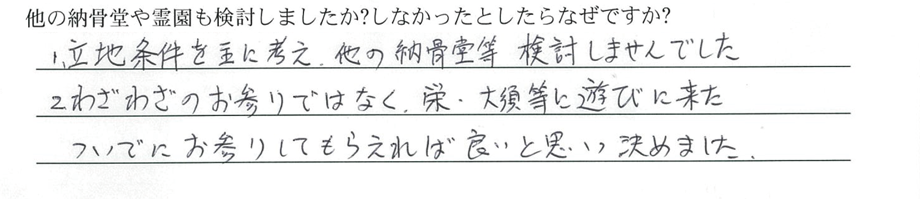 他の納骨堂や霊園も検討しましたか?しなかったとしたらなぜですか?
1.立地条件を主に考え、他の納骨堂等 検討しませんでした
2.わざわざのお参りではなく、栄・大須等に遊びに来た
ついでにお参りしてもらえれば良いと思い 決めました.